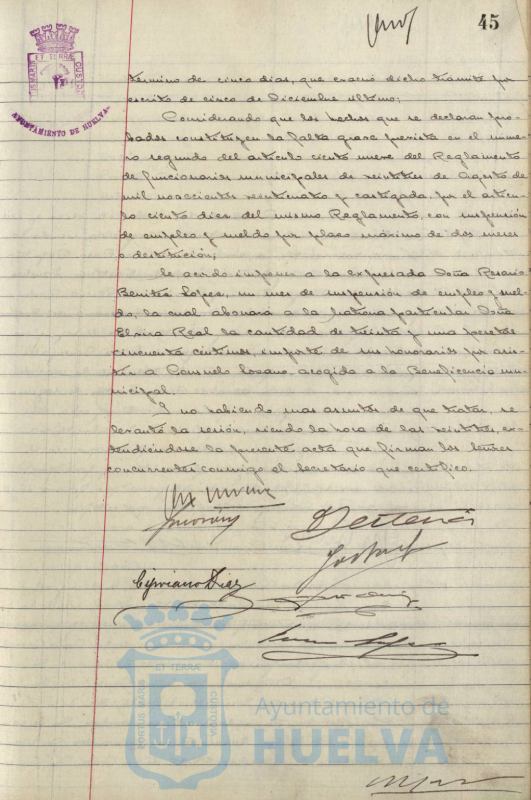 45
PORTUS MARIS ET TERRÆ CUSTODIA
AYUNTAMIENTO DE HUELVA
término de cinco dias, que evacuó dicho trámite por
escrito de cinco de Diciembre último;
Considerando que los hechos que se declaran pro-
bados constituyen la falta grave prevista en el nume-
ro segundo del artículo ciento nueve del Reglamento
de funcionarios municipales de veintitres de Agosto de
mil novecientos veinticuatro y castigada, por el artícu-
lo ciento diez del mismo Reglamento, con suspensión
de empleo y sueldo por plazo máximo de dos meses
o destitución;
Se acordó imponer a la expresada Doña Rosario
Benitez Lopez, un mes de suspensión de empleo y suel-
do, la cual abonará a la matrona particular Doña
Elvira Real la cantidad de treinta y una pesetas
cincuenta céntimos, importe de sus honorarios por asis-
tir a Consuelo Lozano, acogida a la Beneficencia mu-
nicipal.
Y no habiendo mas asuntos de que tratar, se
levantó la sesión, siendo la hora de las veintitres, ex-
tendiéndose la presente acta que firman los señores
concurrentes conmigo el Secretario que certifico.
Cipriano Diaz
PORTUS MARIS ET TERRÆ CUSTODIA
Ayuntamiento de
HUELVA